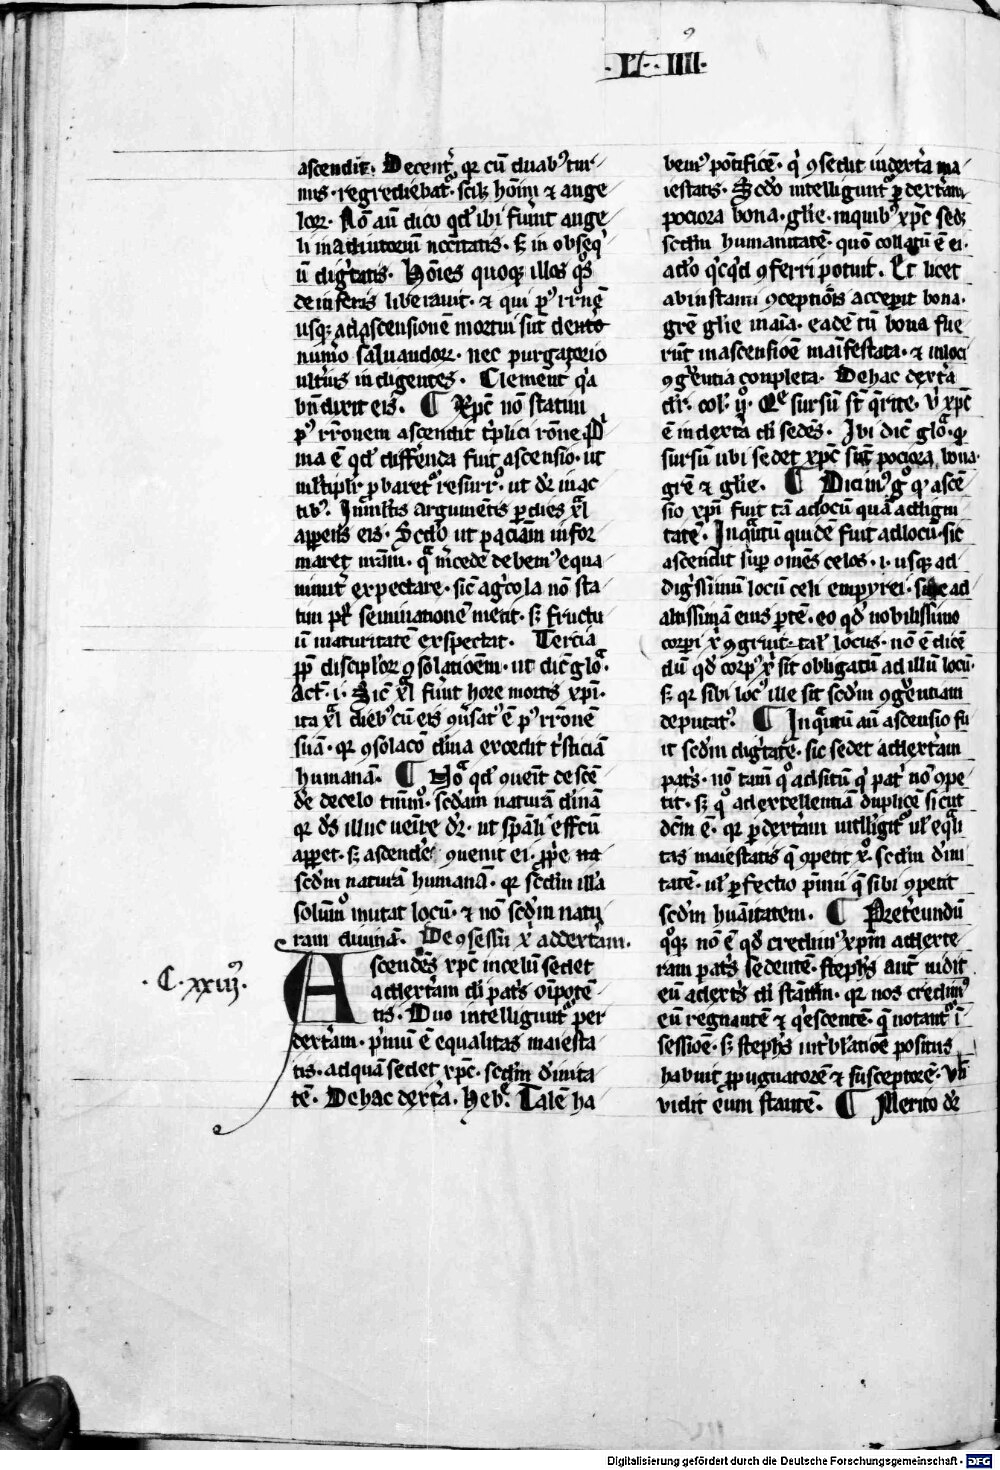 ·L·· IIII·
ascendit. Decent᷑ qꝛ cū duabꝰ tur
mis · regrediebat᷑ · scilꝫ hōīm ⁊ ange
loꝝ· Nō aū dico qd̕ ibi fuīnt ange
li in adiutoriū ncc̄itatis · sꝫ in obseqͥ
ū dignͥtatis · Hōīes quoqꝫ illos qͦs
de inferis liberauit · ⁊ qui pꝰ rr̄nē
usqꝫ ad ascensionē mortui sūt de nto
num̄o saluandoꝝ · nec purgatorio
ultiꝰ indigentes · Clemēnt᷑ qͥa
bn̄dixit eis · ¶ Xp̄c nō statim
pꝰ rr̄onem ascendit tͥplici rōne Pͥ
ma ē qd̕ differ̄nda fuit ascensio · ut
ml̕tiplr̕ ꝓbaret᷑ resurr̕o · ut dr̄ in ac
tibꝰ · In ml̕tis argumētis ꝑ dies xl̕
apparens eis · Scd̕o ut ꝑ aciam infor
maret᷑ · qͣ m̄cede debemꝰ equa
nimit᷑ expectare · sic agͥcola nō sta
tim pꝰ seminationē metit · sꝫ fructu
ū maturitatē exspectat · Tercia
ꝓpt̄ discipl̕oꝝ ↄsolatiōem · ut dic̄ glo·
Act· i· Sic̄ xl̕ fūnt hore mortis xp̄i·
ita xl̕ diebꝰ cū eis ↄūsatꝰ ē pꝰ rr̄onē
suā · qꝛ ↄsolac̄o diīna excedit tͥsticiā
humanā · ¶ Noͣ qd̕ ↄuēit desce
d̕e de celo tm̄mͦ · scd̕am naturā diīnā
qꝛ dꝰs illuc uenīre dr̄ · ut spāli effc̄ū
apparet · sꝫ ascend̕e ↄuenit ei ꝓpͥe na
scd̕m naturā humanā · qꝛ scd̕m illā
solūmͦ mutat locū · ⁊ nō scd̕m natu
ram diuinā · De ↄsessu xͥ ad dext̄am ·
·C·xxiiijꝰ·
Ascendēs xp̄c in celū sedet
a dextam di pat̕s oīpotē
tis · Duo intelligunt᷑ per
dext̄am · pͥmū ē equalitas maiesta
tis · ad quā sedet xp̄c · scd̕m diīnita
tē · De hac dext̄a · Heb᷑ · Talē ha
bemꝰ pōtificē · qͥ ↄsedit in dext̄a ma
iestatis · Scd̕o intelligunt᷑ ꝑ dext̄am
pociora bona · glīe · in quibꝰ xp̄c sedꝫ
scd̕m humanitatē · quō collatū ē ei ·
ad̕o qͥcqͥd ↄferri potuit · Et licet
ab instanti ↄceptiōis acceperit bona ·
grē glīe in aīa · eadē tn̄ bona fue
rūt in ascensiōe maīfestata · ⁊ in loci
ↄgͬuentia conpleta · De hac dext̄a
dr̕· col̕· iijͦ· Qͤ sursū sūt qͥrite · uͥ xp̄c
ē in dext̄a di sedēs · Ibi dic̄ gloͣ · qͥ
sursū ubi sedet xp̄c sūt pociora bona·
grē ⁊ glīe · ¶ Dicimꝰ gͦ qͥ ascē
sio xp̄i fuit tā ad locū quā ad digni
tatē · Inqͣntū quidē fuit ad locū · sic
ascendit sup omēs celos · i· usqꝫ ad
digͥssimū locū celi empyrei · siue ad
altissimā eius ꝑtē · eo qd̕ nobilissimo
corpi xͥ ↄgruit talꝰ locus · nō ē dicē
dū qd̕ corpꝰ xͥ sit obligatū ad illū locū·
sꝫ qꝛ sibi locꝰ ille sit scd̕m ↄgͬuentiam
deputatꝰ · ¶ Inqͣntū aū ascensio fu
it scd̕m dignͥtatē · sic sedet ad dextam
pat̕s · nō tam qͦ ad situm qͥ pat̕ nō ↄpe
tit · sꝫ qͦ ad excellentiā duplicē sicut
dc̄m ē · qꝛ ꝑ dext̄am intl̕ligit᷑ ul̕ equali
tas maiestatis qͣ ↄpetit xͦ · scd̕m diīni
tatē · ul̕ ꝑfectio pͥmi qͣ sibi ↄpetit
scd̕m huāitatem · ¶ Pret̄eundū
qͦqꝫ nō ē qd̕ credimꝰ xp̄m ad dexte
ram pat̕s sedentē · stephꝰs aut̄ uidit
eū a dext̕s di stātem · qꝛ nos credimꝰ
eū regnantē ⁊ qͥescentē · qͣ notant᷑ ī
sessiōe · sꝫ stephꝰs in t̕bl̕atiōe positus
habuit ꝓpugnatorē ⁊ susceptorē · ub̕
vidit eum stantē · ¶ Merito dr̄
Digitalisierung gefördert durch die Deutsche Forschungsgemeinschaft · DFG